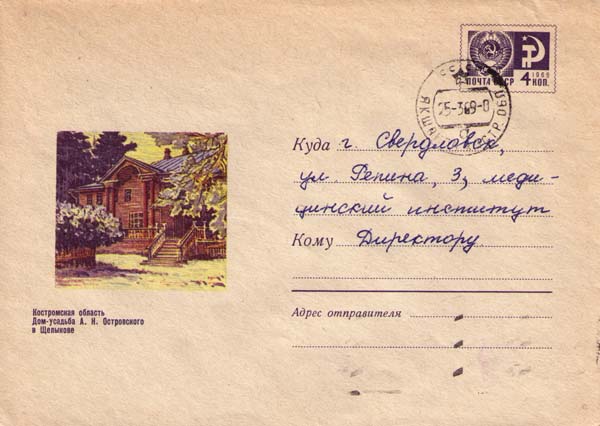 ПОЧТА СССР
1966
4 КОП.
25-3 69-0
Куда г. Свердловск,
ул Репина, 3, меди-
цинский институт
Кому Директору
Адрес отправителя
Костромская область
Дом-усадьба А. Н. Островского
в Щелыкове